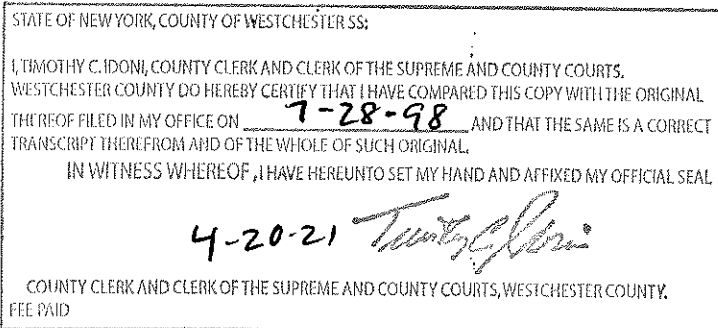 STATE OF NEW YORK, COUNTY OF WESTCHESTER SS:
I, TIMOTHY C. IDONI, COUNTY CLERK AND CLERK OF THE SUPREME AND COUNTY COURTS.
WESTCHESTER COUNTY DO HEREBY CERTIFY THAT I HAVE COMPARED THIS COPY WITH THE ORIGINAL
THEREOF FILED IN MY OFFICE ON 7-28-98 AND THAT THE SAME IS A CORRECT
TRANSCRIPT THEREFROM AND OF THE WHOLE OF SUCH ORIGINAL.
IN WITNESS WHEREOF, I HAVE HEREUNTO SET MY HAND AND AFFIXED MY OFFICIAL SEAL
4-20-21
COUNTY CLERK AND CLERK OF THE SUPREME AND COUNTY COURTS, WESTCHESTER COUNTY.
FEE PAID